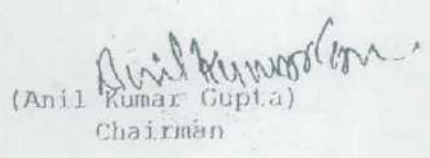 Anil Kumar Gup
(Anil Kumar Gupta)
Chairman